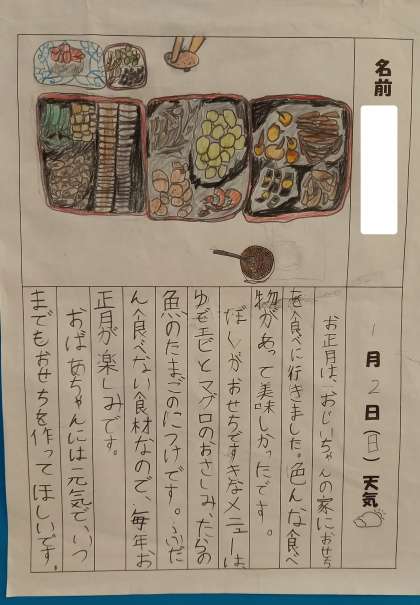 名前
1月2日(日)天気
お正月は、おじいちゃんの家におせち
を食べに行きました。色んな食べ
物があって美味しかったです。
ぼくがおせちですきなメニューは、
ゆでエビとマグロのおさしみ、たらの
魚のたまごのにつけです。ふだ
ん食べない食材なので、毎年お
正月が楽しみです。
おばあちゃんには元気で、いつ
までもおせちを作ってほしいです。